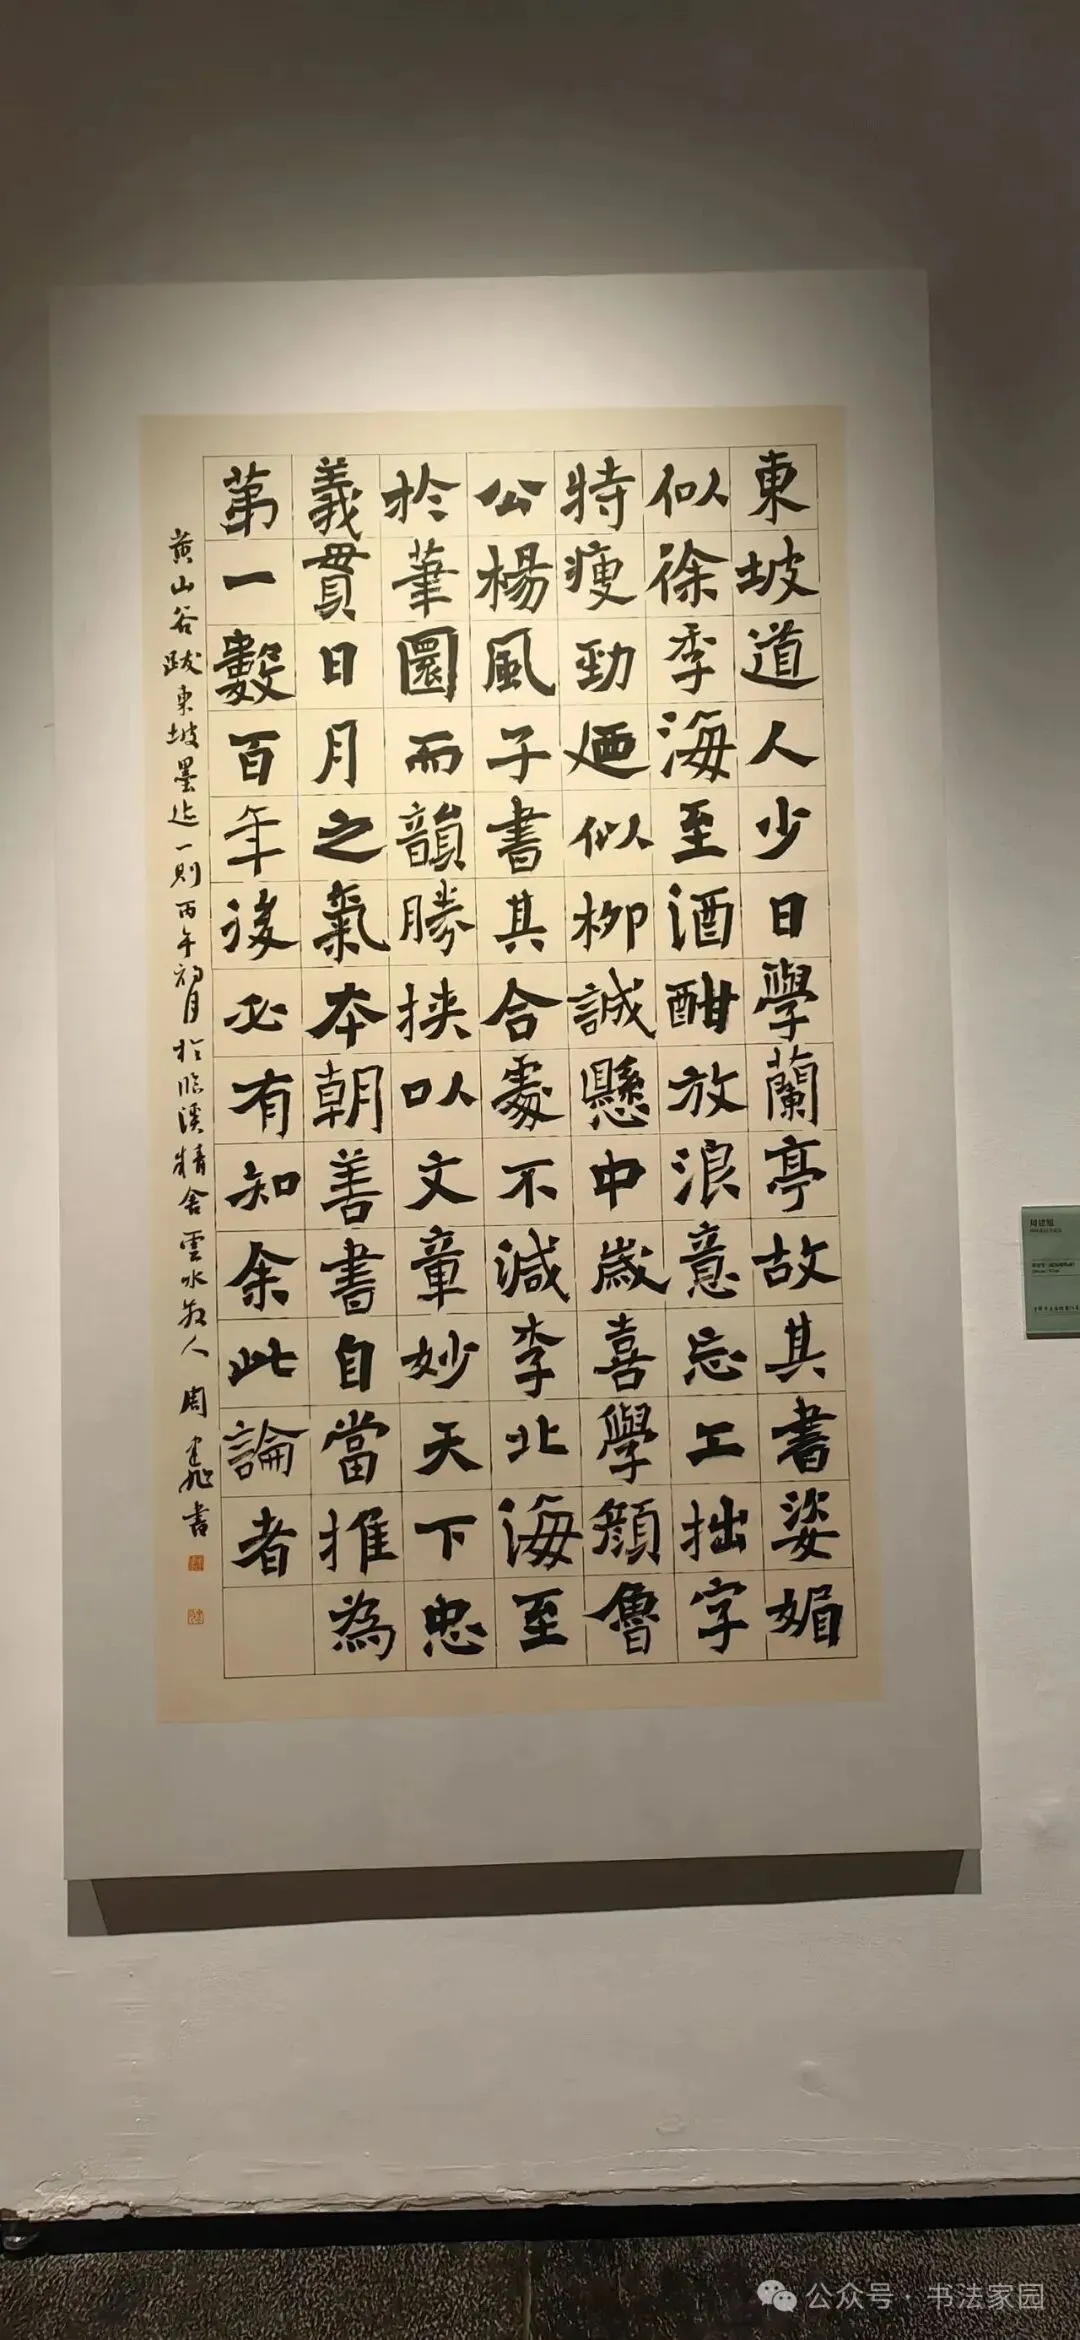 東坡道人少日學蘭亭故其書姿媚
似徐季海至酒酣放浪意忘工拙字
特瘦勁廼似柳誠懸中歲喜學顏魯
公楊風子書其合處不減李北海至
於筆圜而韻勝挾以文章妙天下忠
義貫日月之氣本朝善書自當推為
第一數百年後必有知余此論者
黃山谷跋東坡墨迹一則丙午初月於臨溪精舍雲水散人周建旭書
公众号 · 书法家园